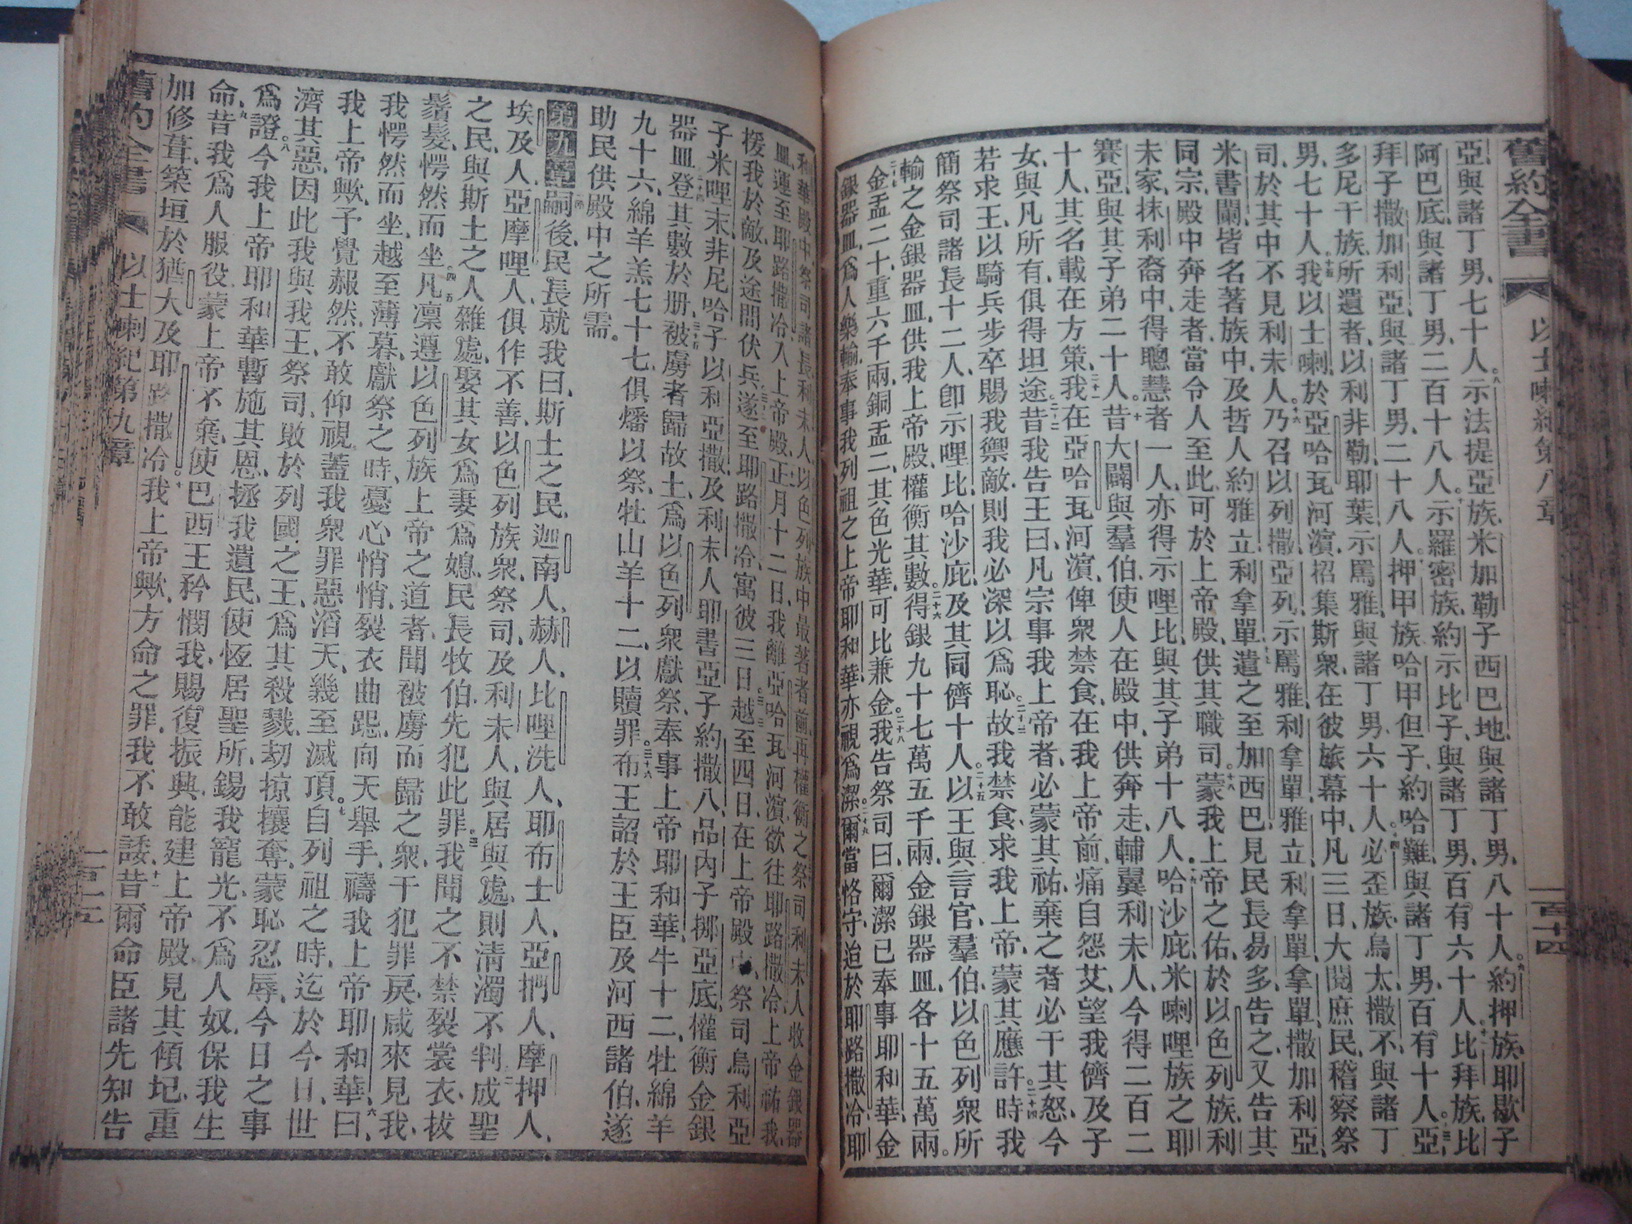 舊約全書
以士喇紀第八章
一百十四
亞與諸丁男七十人示法提亞族米加勒子西巴地與諸丁男八十人約押族耶歇子
阿巴底與諸丁男二百十八人示羅密族約示比子與諸丁男百有六十人比拜族比
拜子撒加利亞與諸丁男二十八人押甲族哈甲但子約哈難與諸丁男百有十人亞
多尼干族所遺者以利非勒耶葉示罵雅與諸丁男六十人必歪族烏太撒不與諸丁
男七十人我以士喇於亞哈瓦河濱招集斯衆在彼旅幕中凡三日大閱庶民稽察祭
司於其中不見利未人乃召以列撒亞列示罵雅利拿單雅立利拿單拿單撒加利亞
米書闌皆名著族中及哲人約雅立利拿單遣之至加西巴見民長易多告之又告其
同宗殿中奔走者當令人至此可於上帝殿供其職司蒙我上帝之佑於以色列族利
未家抹利裔中得聰慧者一人亦得示哩比與其子弟十八人哈沙庇米喇哩族之耶
賽亞與其子弟二十人昔大闢與羣伯使人在殿中供奔走輔翼利未人今得二百二
十人其名載在方策我在亞哈瓦河濱俾衆禁食在我上帝前痛自怨艾望我儕及子
女與凡所有俱得坦途昔我告王曰凡宗事我上帝者必蒙其祐棄之者必干其怒今
若求王以騎兵步卒賜我禦敵則我必深以爲恥故我禁食求我上帝蒙其應許時我
簡祭司諸長十二人卽示哩比哈沙庇及其同儕十人以王與言官羣伯以色列衆所
輸之金銀器皿供我上帝殿權衡其數得銀九十七萬五千兩金銀器皿各十五萬兩
金盂二十重六千兩銅盂二其色光華可比兼金我告祭司曰爾潔已奉事耶和華金
銀器皿爲人樂輸奉事我列祖之上帝耶和華亦視爲潔爾當恪守迨於耶路撒冷耶
和華殿中祭司諸長利未人以色列族中最著者前再權衡之祭司利未人收金銀器
皿運至耶路撒冷入上帝殿正月十二日我離亞哈瓦河濱欲往耶路撒冷上帝祐我
援我於敵及途間伏兵遂至耶路撒冷寓彼三日越至四日在上帝殿中祭司烏利亞
子米哩末非尼哈子以利亞撒及利未人耶書亞子約撒八品內子挪亞底權衡金銀
器皿登其數於册被虜者歸故土爲以色列衆獻祭奉事上帝耶和華牛十二牡綿羊
九十六綿羊羔七十七俱燔以祭牡山羊十二以贖罪布王詔於王臣及河西諸伯遂
助民供殿中之所需
第九章嗣後民長就我曰斯土之民迦南人赫人比哩洗人耶布士人亞捫人摩押人
埃及人亞摩哩人俱作不善以色列族衆祭司及利未人與居與處則淸濁不判成聖
之民與斯土之人雜處娶其女爲妻爲媳民長牧伯先犯此罪我聞之不禁裂裳衣拔
鬚髮愕然而坐凡凜遵以色列族上帝之道者聞被虜而歸之衆干犯罪戾咸來見我
我愕然而坐越至薄暮獻祭之時憂心悄悄裂衣曲跽向天舉手禱我上帝耶和華曰
我上帝歟予覺赧然不敢仰視蓋我衆罪惡滔天幾至滅頂自列祖之時迄於今日世
濟其惡因此我與我王祭司敗於列國之王爲其殺戮刼掠攘奪蒙恥忍辱今日之事
爲證今我上帝耶和華暫施其恩拯我遺民使恆居聖所錫我寵光不爲人奴保我生
命昔我爲人服役蒙上帝不棄使巴西王矜憫我賜復振興能建上帝殿見其傾圮重
加修葺築垣於猶大及耶路撒冷我上帝歟方命之罪我不敢諉昔爾命臣諸先知告
舊約全書
以士喇紀第九章
一百十五